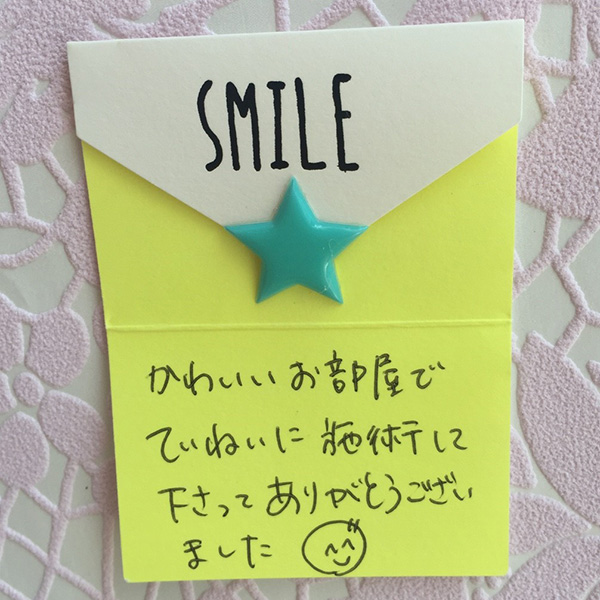 SMILE
かわいいお部屋で
ていねいに施術して
下さってありがとうござい
ました